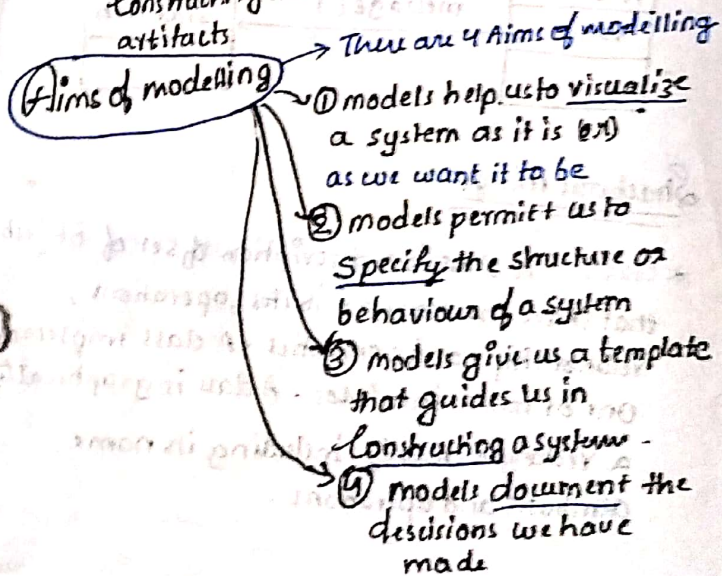 Constructing
artifacts.
Aims of modelling
There are 4 Aims of modelling
① models help us to visualize
a system as it is (or)
as we want it to be
② models permitt us to
Specify the structure or
behaviour of a system
③ models give us a template
that guides us in
Constructing a system
④ models document the
descisions we have
made